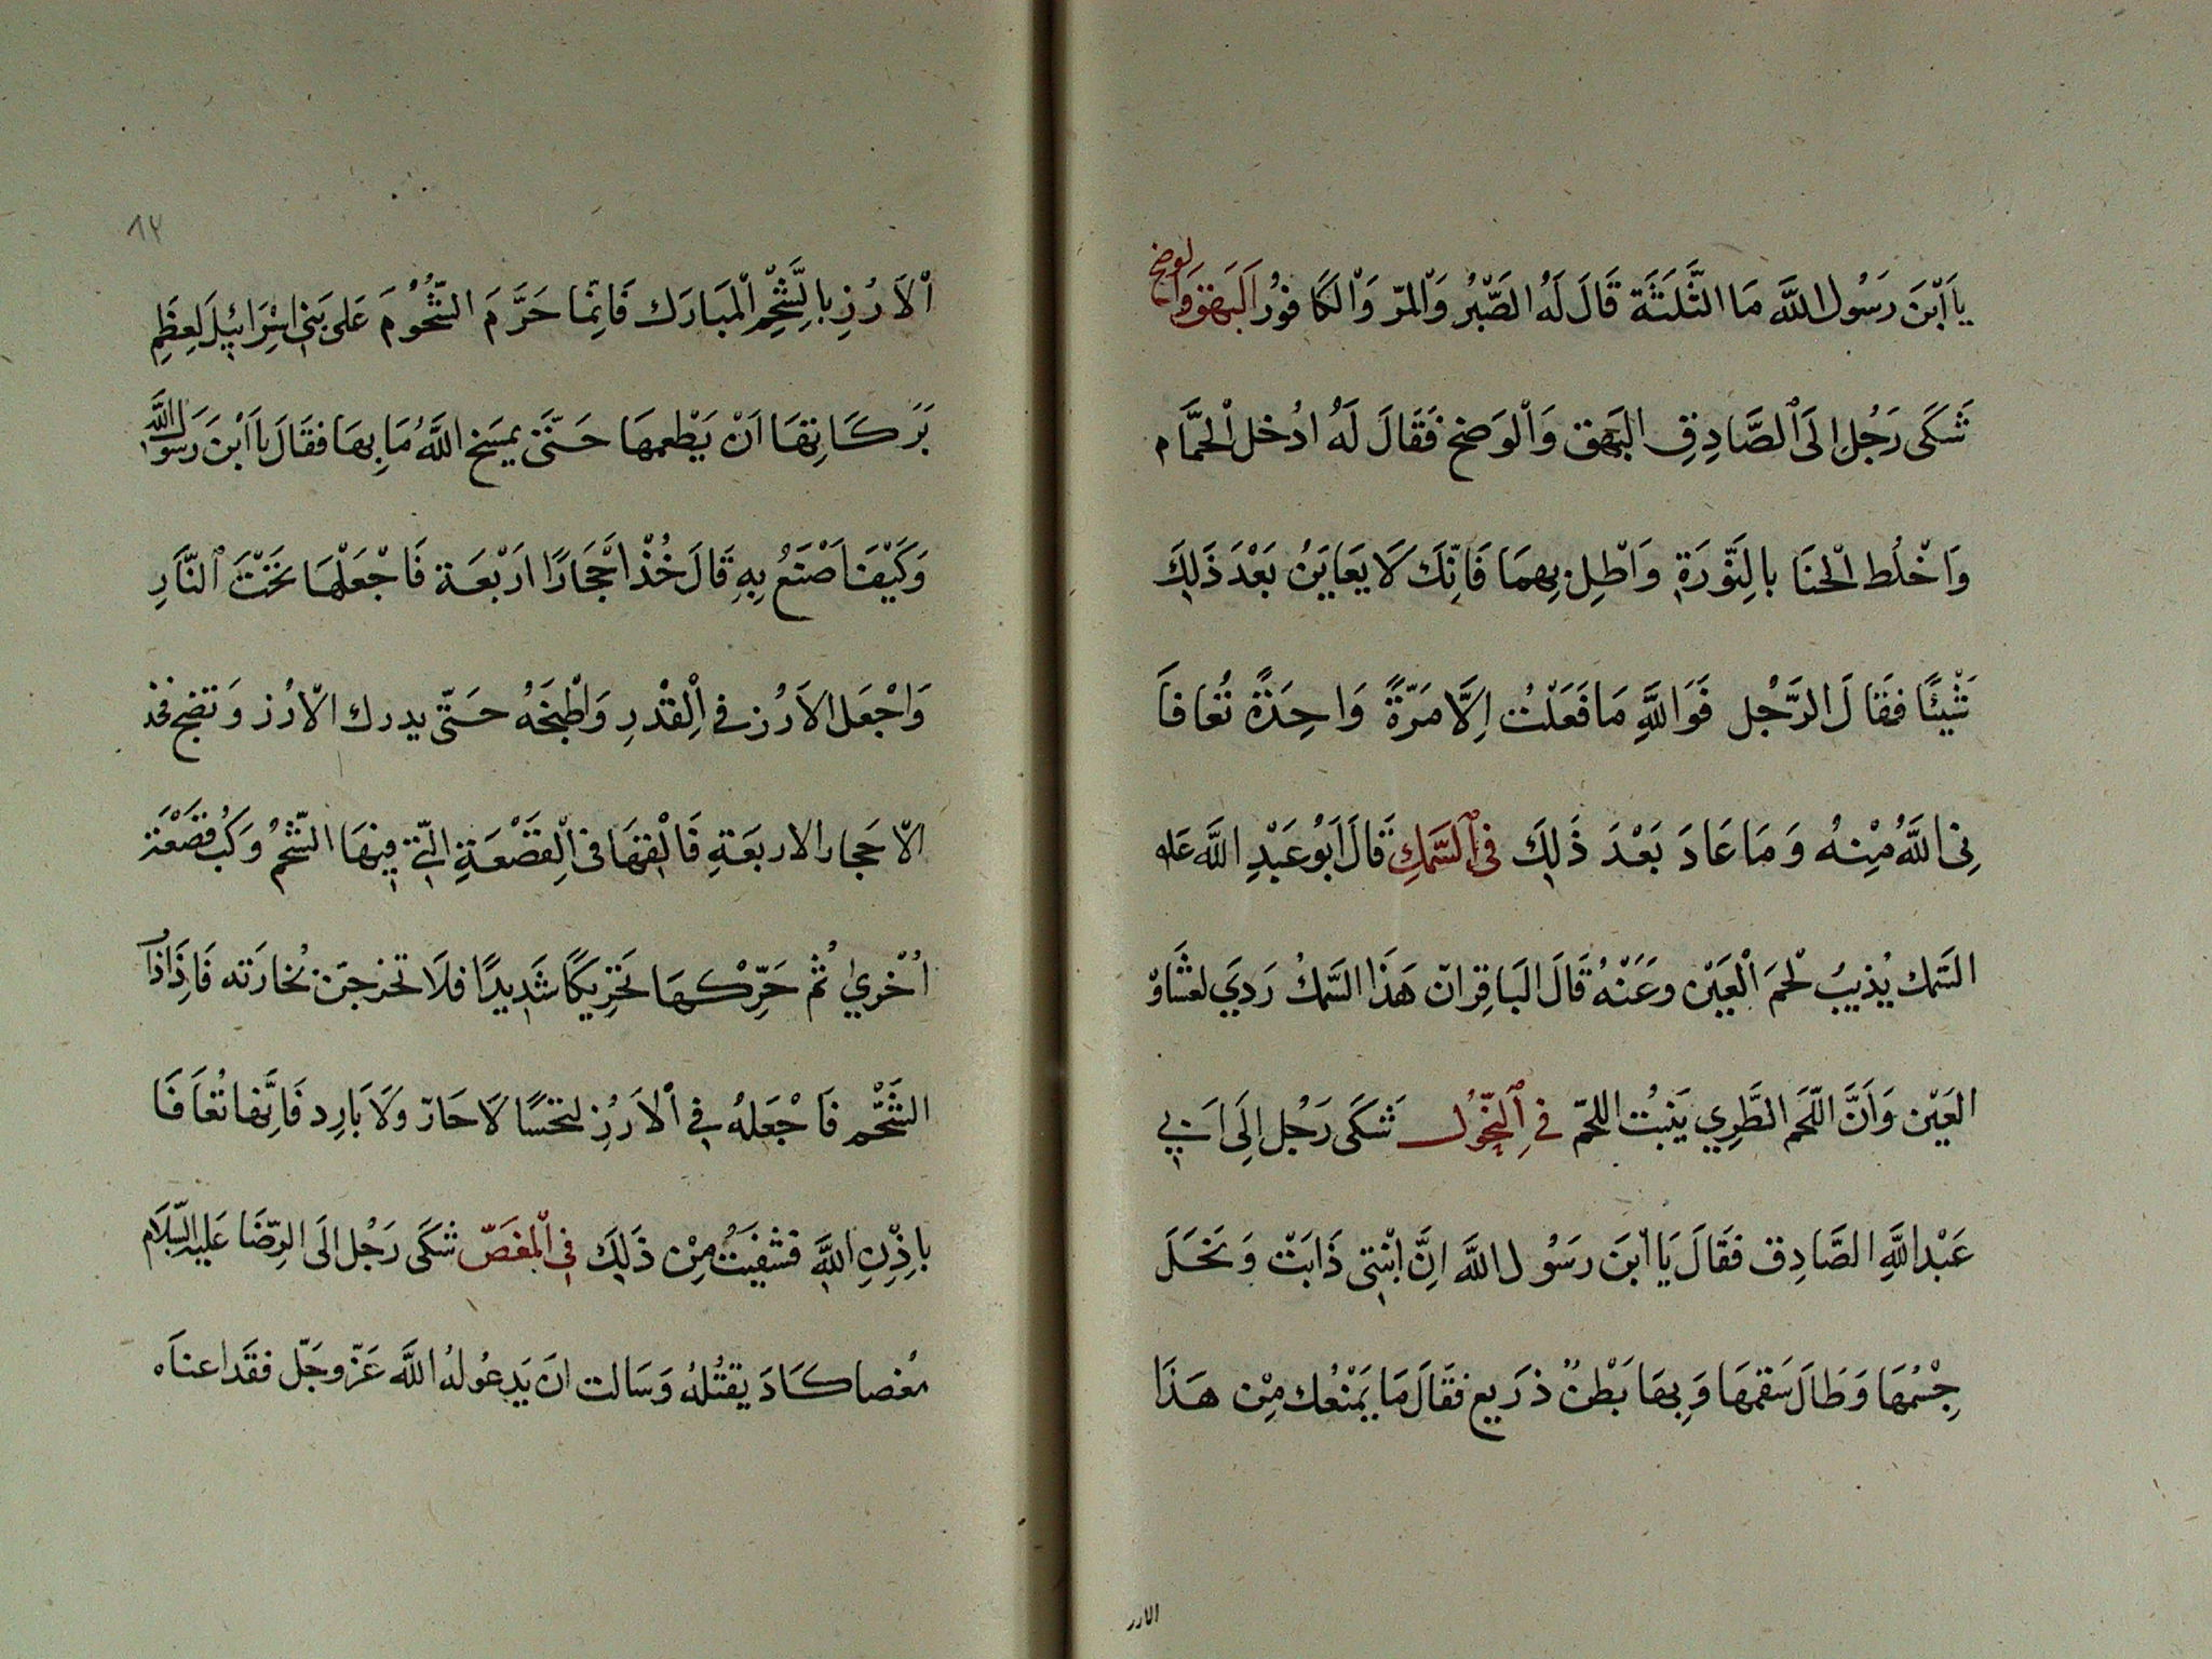 يَا اَبْنَ رَسُولِ اللَّه مَا الثَّلَثَةَ قَالَ لَهُ الصَّبْرُ وَالْمرّ وَالْكَافُورُ اَلبَهَقَ وَالوضح
شَكَى رَجُل اِلىَ الصَّادِقِ البَهَق وَالْوَضح فَقَالَ لَهُ ادُخل الْحَمَّام
وَاخْلُط الْحنَا بالِنَّوُرَةِ وَاطْلِ بِهِمَا فَاِنَّكَ لَا يَعَايَنُ بَعْدَ ذَلِكَ
شَيْئًا فقَالَ الرَّجُل فَوَاللَّهِ مَا فَعَلْتُ اِلَّا مَرّةً وَاحِدَةً نُعَافَا
نِى اللَّهُ مِنْهُ وَمَا عَادَ بَعْدَ ذَلِكَ فى اَلسَّمَكِ قَالَ اَبُو عَبْدِ اللَّه عَله
السَمَك يُذيبُ لْحَمَ الْعَيَنْ وعَنْهُ قَالَ البَاقِر انّ هَذَا السَّمَكُ رَدِيَ لغشَاوْ
العَيَنْ وَاَنَّ اللّحَم الطَّرِي يَنبتُ اللحَم فِى اَلنِّحُول شَكَى رَجُل اِلَى اَبِي
عَبْد اللَّهِ الصَّادِق فقَالَ يَا ابنَ رَسَوُل اللَّه انَّ ابْنتِى ذَابَتْ وَنَحَلَ
جِسْمُهَا وَطَالَ سَقمهَا وَبِهَا بَطْنٌ ذرَيع فقَالَ مَا يَمْنعُك مِنْ هَذَا
الارز
٨٢
اْلاَرُزِ بالِشَّحْمِ الْمبَارَك فَانِمَّا حَرَّمَ الشُّحُوْمَ عَلى بَنِى اسِْرَائِيلَ لِعظَمِ
بَرَكَاتِهَا اَنْ يَطْعمهَا حَتّىَ يمسَح اللَّهُ مَا بِهَا فقَالَ يا اَبْنَ رَسَوُل اللَّه
وَكَيْفَ اَصْنَعُ بِهِ قَالَ خُذْ اَحْجَارًا ارَبْعَة فَاجْعَلْهَا تَحْتَ النَّارِ
وَاجْعَل الاَرُز فى اْلِقدْرِ وَاطْبخَهُ حَتّى يدرك الاّرُز وَتنضج فخذ
الاَحَجار الاربعَةِ فَالْقهَا فى اْلقَصْعَةِ الّتِى فِيهَا الشّحَمُ وَكُبّ قصَعْةَ
اُخْرىٰ ثُم حَرِّكْهَا تَحَرْيكًا شَدِيدًا فلَا تخرجَن بُخارَته فَاِذَا ذابَ
الشَّحْمَ فَاجْعَلهُ فِى اْلاَرُزِ لتحَسَا لَا حَارّ وَلَا بَارِد فَاِنَّها تُعَافَا
باِذْنِ اللَّهِ فشفِيَتُ مِنْ ذَلِكَ فى الْمغَصّ شَكَى رَجُل اِلَى الرِّضَا عَليهِ السَّلَام
مَغصا كَادَ يقتُلهُ وَسَالت ان يَدعُو لهُ اللَّه عَزّ وجَلّ فقَد اعنَاه